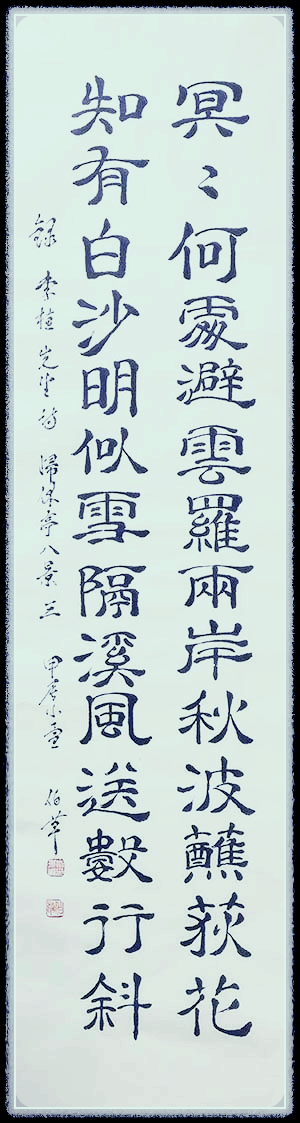 冥〻何處避雲羅兩岸秋波蘸荻花
知有白沙明似雪隔溪風送數行斜
錄 李植先生詩 歸休亭八景 三 甲辰小雪 伯